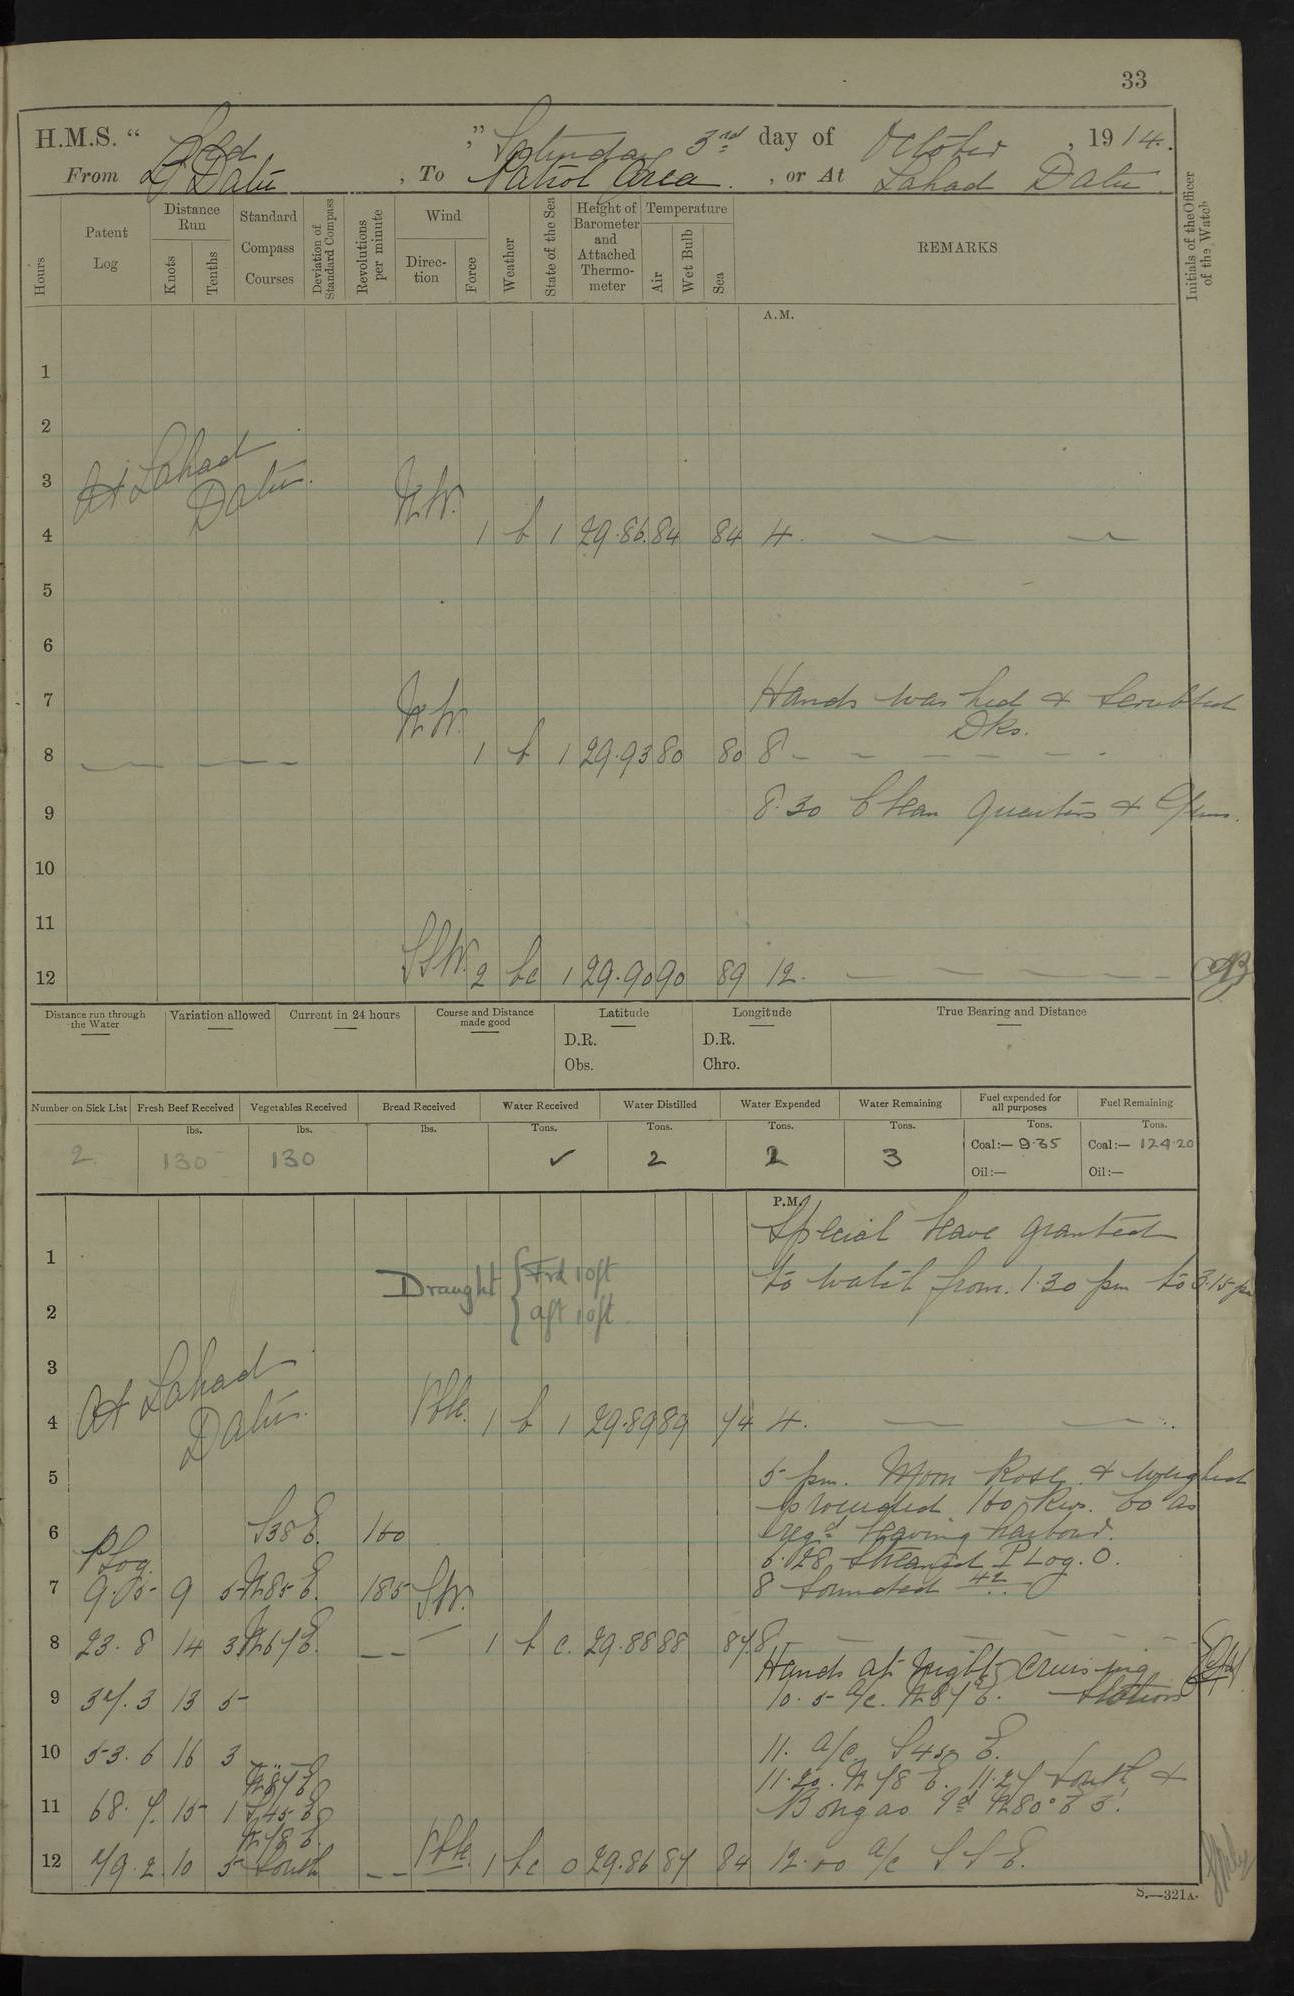 33
H.M.S. “ ,” Saturday 3rd day of October , 1914.
From L Datu , To Patrol Area . , or At Lahad Datu .
Hours
Patent Log
Distance Run
Knots
Tenths
Standard Compass Courses
Deviation of Standard Compass
Revolutions per minute
Wind
Direction
Force
Weather
State of the Sea
Height of Barometer and Attached Thermometer
Temperature
Air
Wet Bulb
Sea
REMARKS
Initials of the Officer of the Watch
A.M.
1
2
3 At Lahad Datu.
4 N.W. 1 b 1 29.86 84 84 4.
5
6
7 Hands washed & scrubbed
Dks.
8 N.W. 1 b 1 29.93 80 80 8
9 8.30 Clean Quarters &
10
11
12 SSW. 2 bc 1 29.90 90 89 12.
Distance run through the Water
Variation allowed
Current in 24 hours
Course and Distance made good
Latitude
D.R.
Obs.
Longitude
D.R.
Chro.
True Bearing and Distance
Number on Sick List 2
Fresh Beef Received lbs. 130
Vegetables Received lbs. 130
Bread Received lbs.
Water Received Tons. ✓
Water Distilled Tons. 2
Water Expended Tons. 2
Water Remaining Tons. 3
Fuel expended for all purposes Tons. Coal:— 9.35 Oil:—
Fuel Remaining Tons. Coal:— 124.20 Oil:—
P.M.
Special leave granted
1 to watch from 1.30 pm to 3.15 pm
Draught { Frd 10ft
2 aft 10ft
3 At Lahad
4 Datu. Vble. 1 b 1 29.89 89 84 4.
5 5 pm. Moon Rose & weighed
proceeded 160 Revs. &c as
6 S38E. 160 reqd leaving harbour.
P Log. 6.28 Streamed P Log. 0.
7 9.5 9 5 N85E. 185 S.W. 8 Sounded 42
8 23.8 14 3 N67E. 1 b c. 29.88 88 87 8
Hands at Night Cruising
9 37.3 13 5 10.5 a/c. N87E. Stations
10 53.6 16 3 11. a/c S45E.
N87E 11.20. N78E. 11.27 South &
11 68.7 15 1 S45E Bongao Id N80°E 5'.
N78E.
12 79.2 10 5 South Vble. 1 bc 0 29.86 87 84 12.00 a/c SSE.
S.—321A.